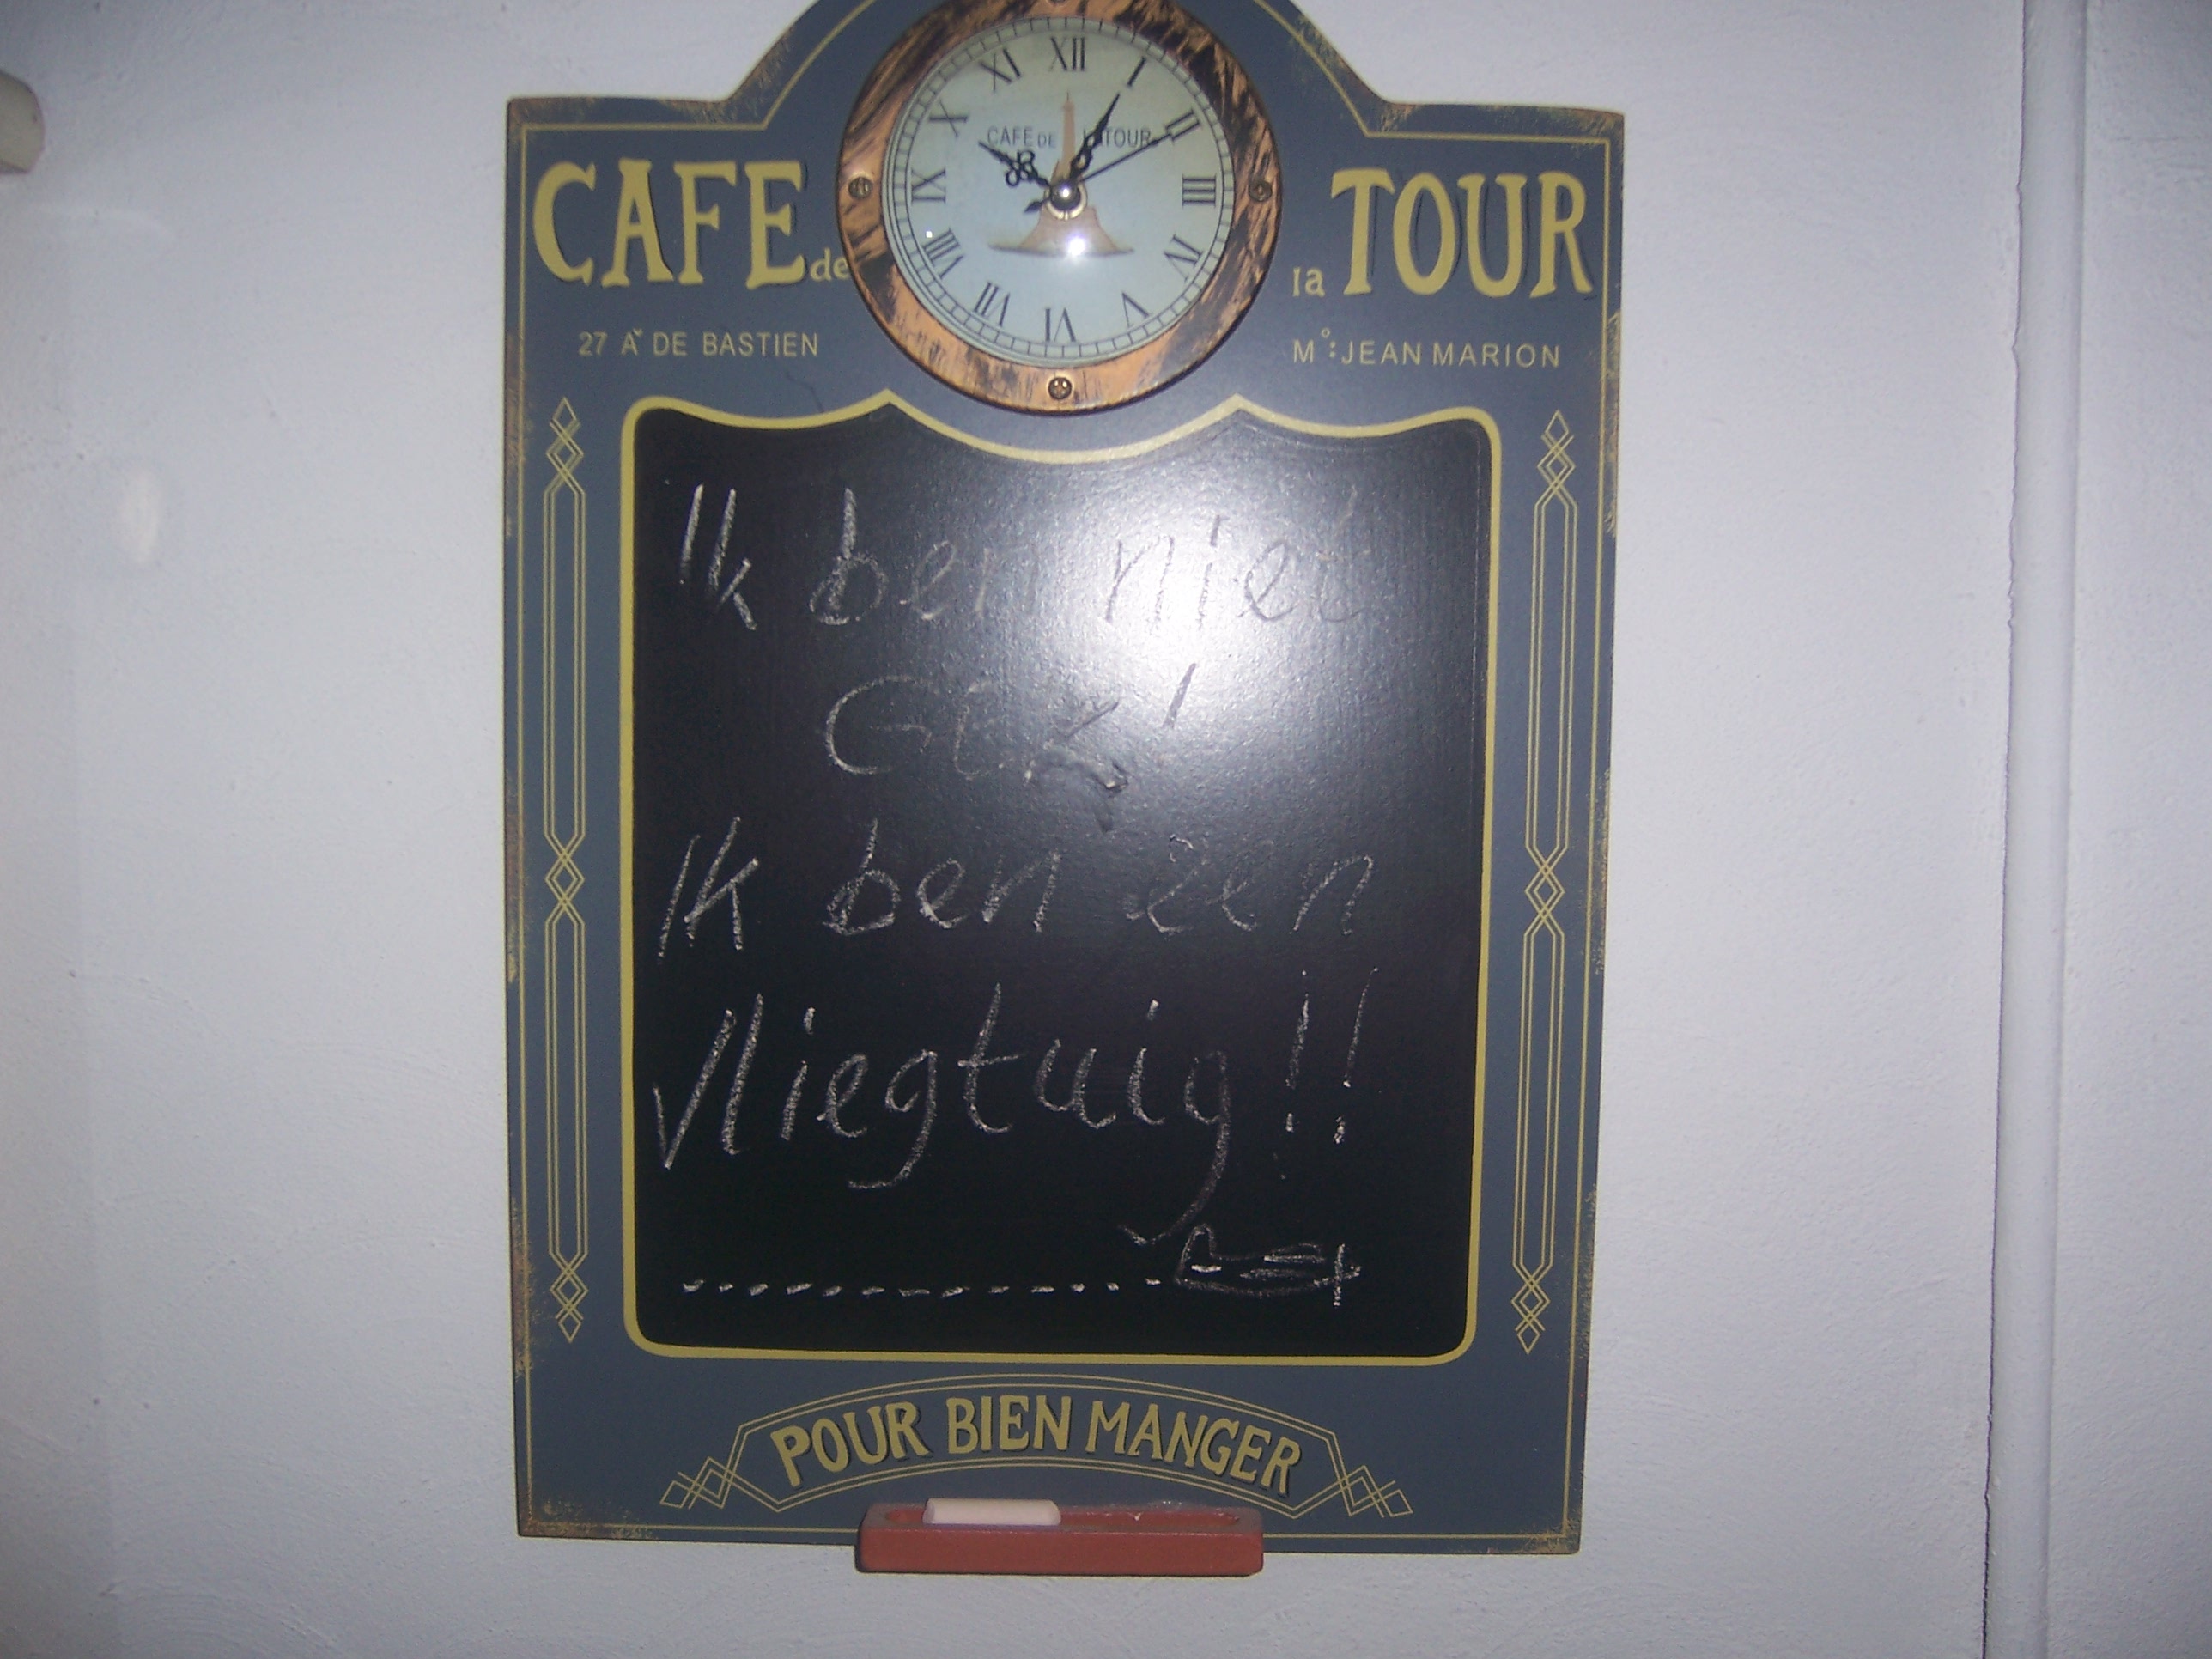 XII
I
II
III
IV
V
VI
VII
VIII
IX
X
XI
CAFE DE LA TOUR
CAFE de la TOUR
27 Aᵛ DE BASTIEN
M°: JEAN MARION
Ik ben niet
GEK!
Ik ben een
vliegtuig!!
POUR BIEN MANGER